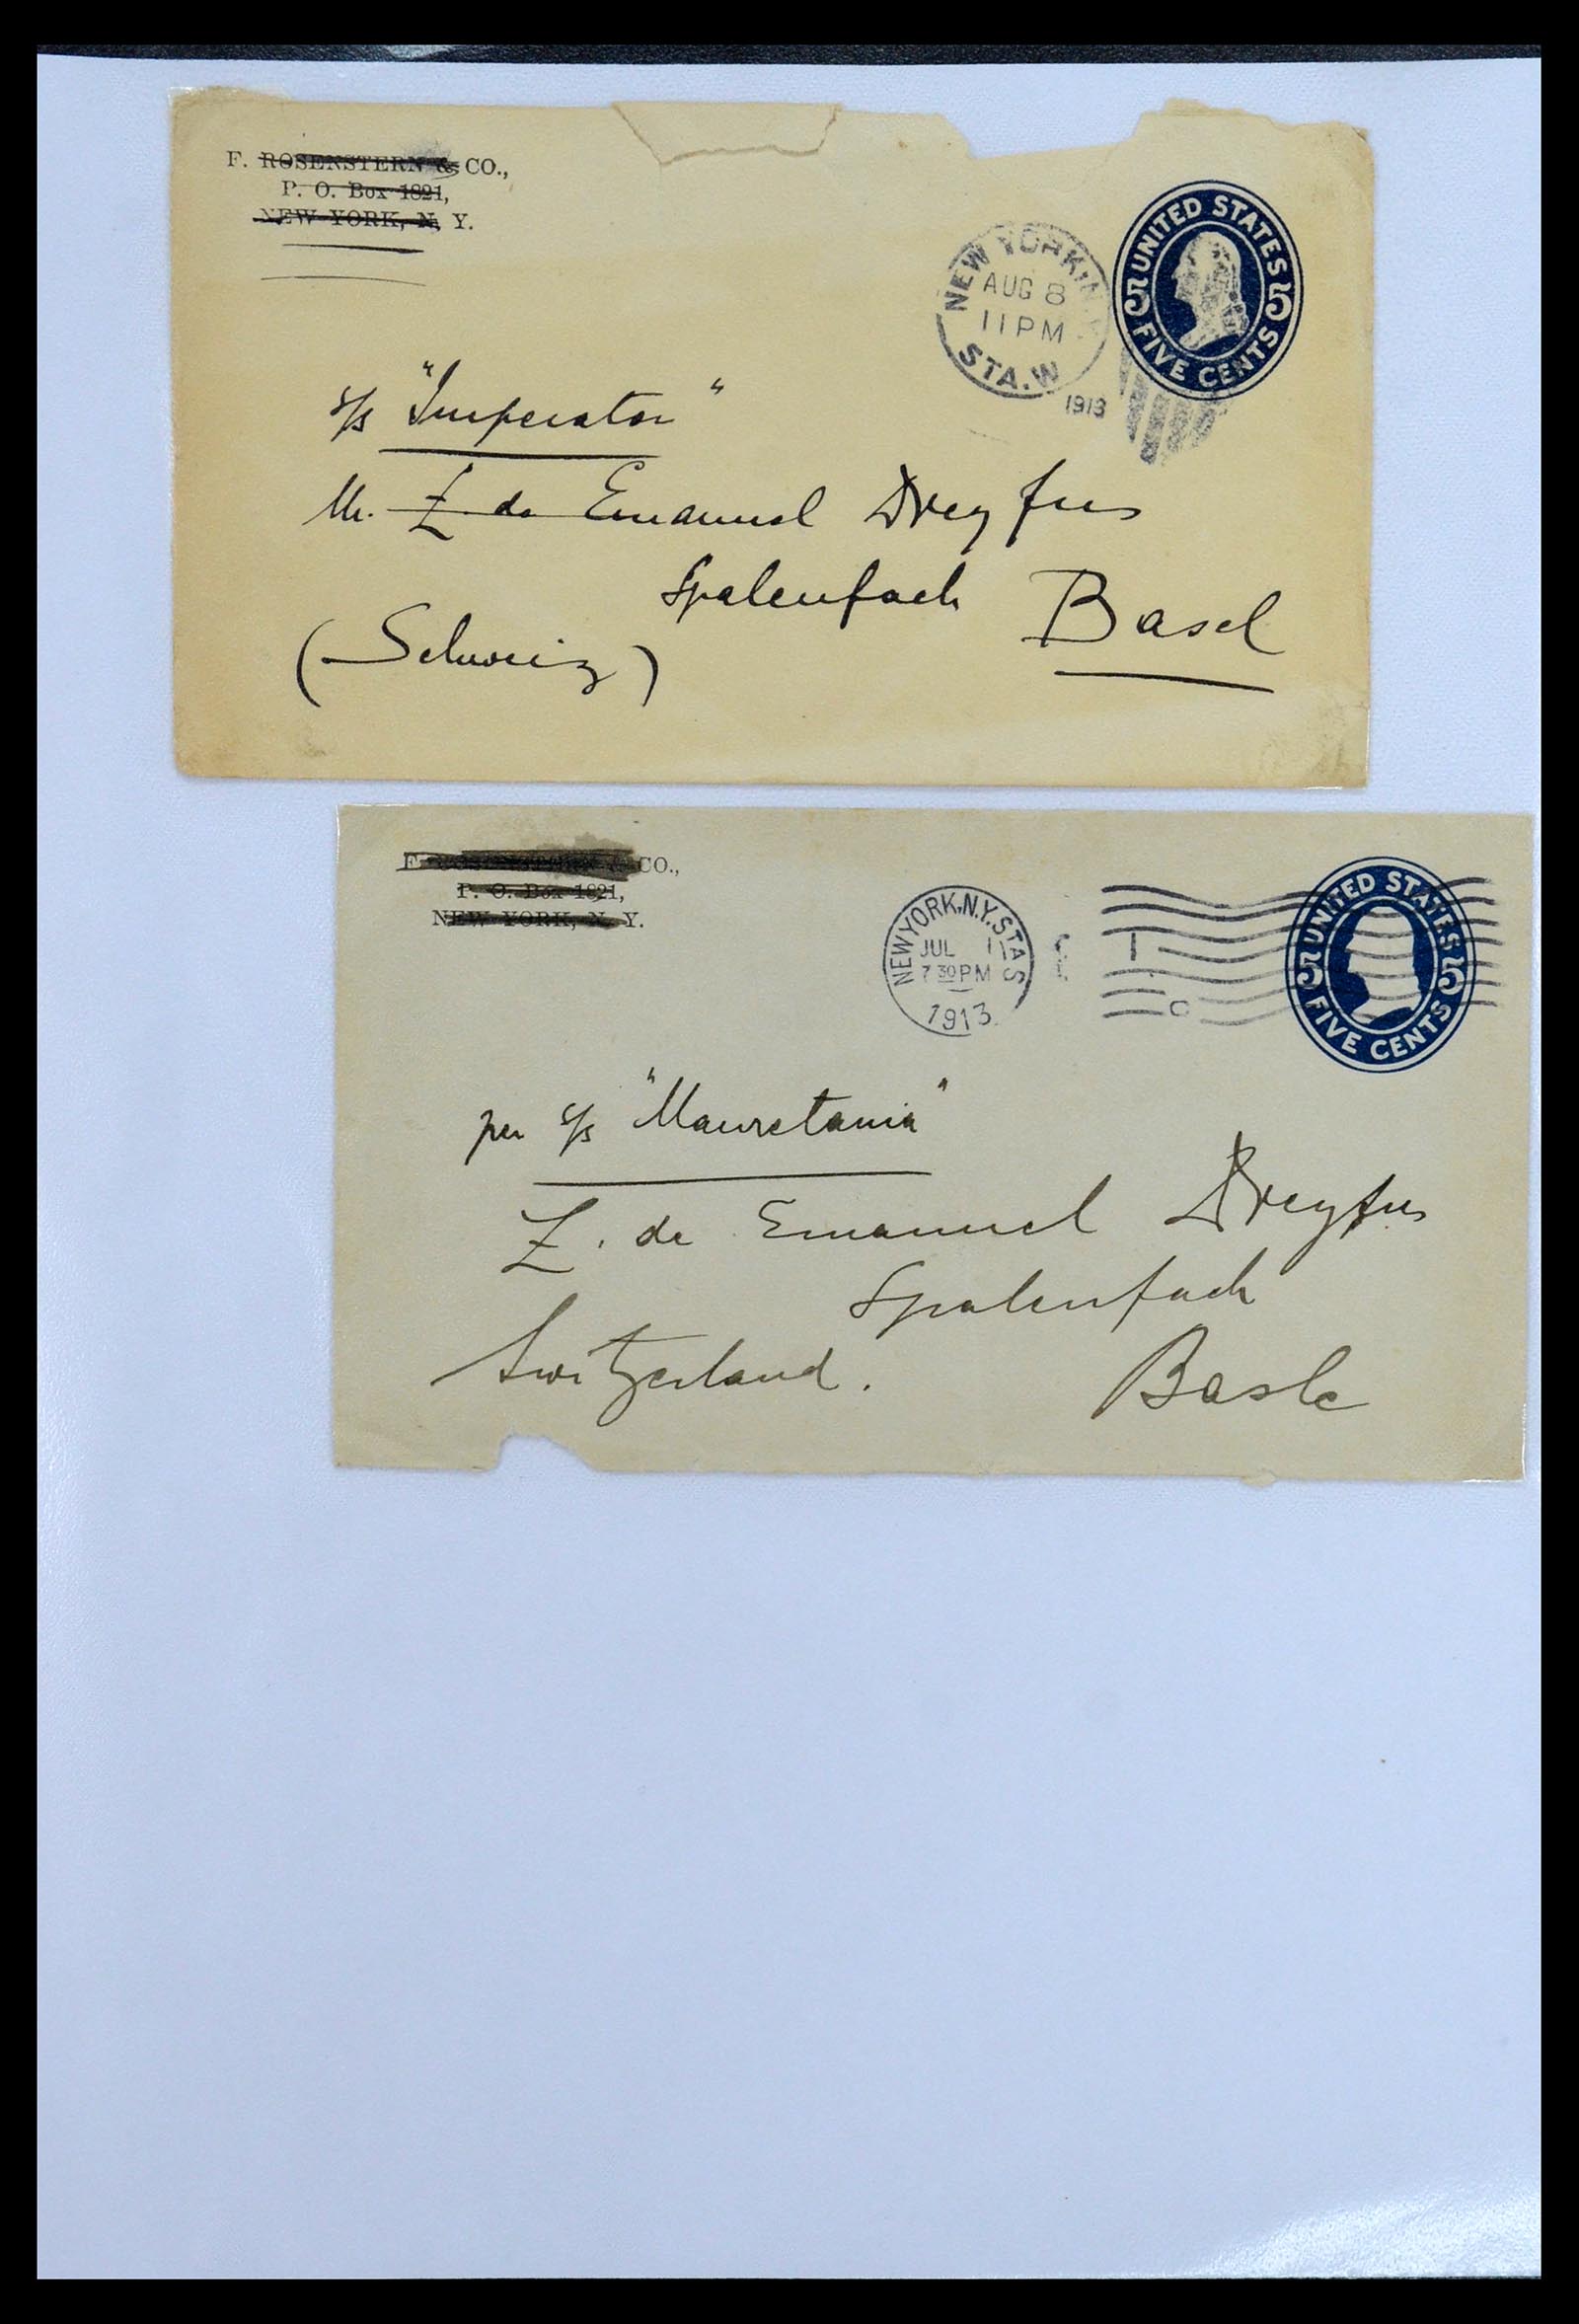 F. ROSENSTERN & CO.,
P. O. Box 1821,
NEW YORK, N. Y.
NEW YORK, N.Y.
AUG 8
11 PM
STA. W
1913
UNITED STATES
5 5
FIVE CENTS
s/s "Imperator"
Mr. Z. de Emanuel Dreyfus
Spalenfach Basel
(Schweiz)
F. CO.,
P. O. Box 1821,
NEW YORK, N. Y.
NEW YORK, N.Y. STA S
JUL 1
7 30 PM
1913
UNITED STATES
5 5
FIVE CENTS
per s/s "Mauretania"
Z. de Emanuel Dreyfus
Spalenfach
Switzerland. Basle